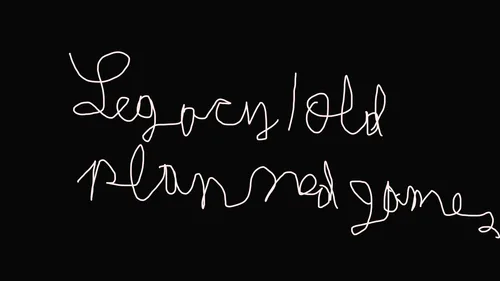 Legacy/old
planned games